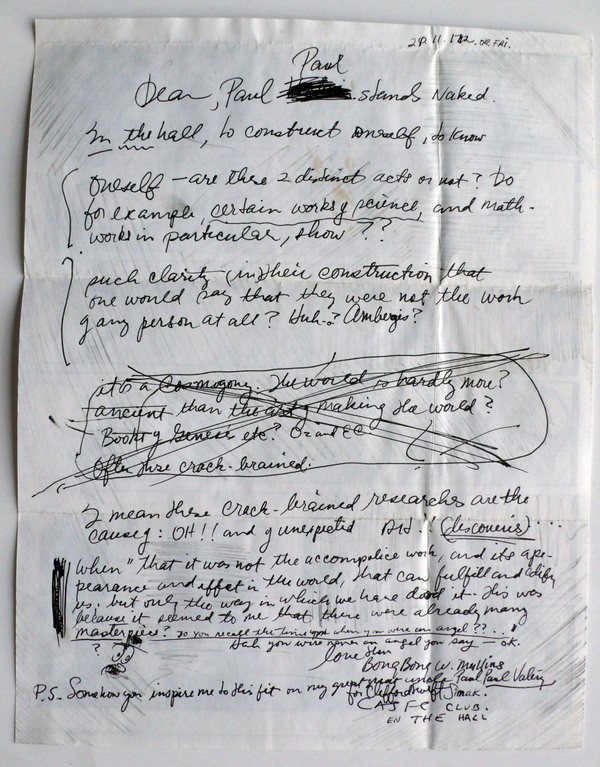 Paul
Dear, Paul stands Naked.
In the hall, to construct oneself, to know
oneself — are these 2 distinct acts or not? Do
for example, certain works of science, and math-
works in particular, show ??
such clarity in their construction that
one would say that they were not the work
of any person at all? Huh?
it is a Cosmogony. The world is hardly more?
ancient than the art of making the world?
Books of Genesis etc? Oz and EC.
Often these crack-brained.
I mean these crack-brained researches are the
cause of: OH!! and of unexpected AH!! (discoveries) ...
When "that it was not the accomplice work, and its ap-
pearance and effect in the world, that can fulfill and edify
us, but only the way in which we have done it. This was
because it seemed to me that there were already many
masterpiece? Do you recall the time when you were an angel ??..."
? Hah you were never an angel you say — ok.
love Him
BongBong W. Mullins
P.S. Somehow you inspire me to this fit on my great great uncle Paul Paul Valéry
for Clifford Simak.
CLUB.
EN THE HALL